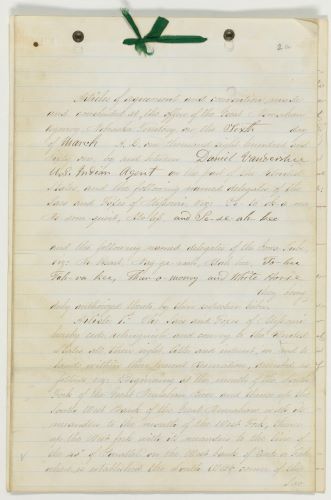 20
Articles of agreement and convention made
and concluded at the office of the Great Nemahaw
Agency Nebraska Territory on the Sixth day
of March A.D. one thousand eight hundred and
Sixty one, by and between Daniel Vanderslice
U.S. Indian Agent on the part of the United
States, and the following named delegates of the
Sacs and Foxes of Missouri, viz:
and Se-se-ah-kee
and the following named delegates of the Iowa Tribe
viz: No Heart, Nag-ga-rash,
Tah-ra-kee, Thur-o-mony and White Horse
they being
duly authorized thereto by their respective tribes.
Article 1st The Sacs and Foxes of Missouri
hereby cede, relinquish and convey to the United
States all their right, title and interest in and to
lands within their present Reservation, described as
follows viz: Beginning at the mouth of the South
Fork of the Great Nemahaw River and thence up the
South West Bank of the Great Nemahaw with its
meanders to the mouth of the West Fork, thence
up the West fork with its meanders to the line of
the 40° of Parallel on the West bank of Creek or Fork
which is established the South West corner of the
Sac